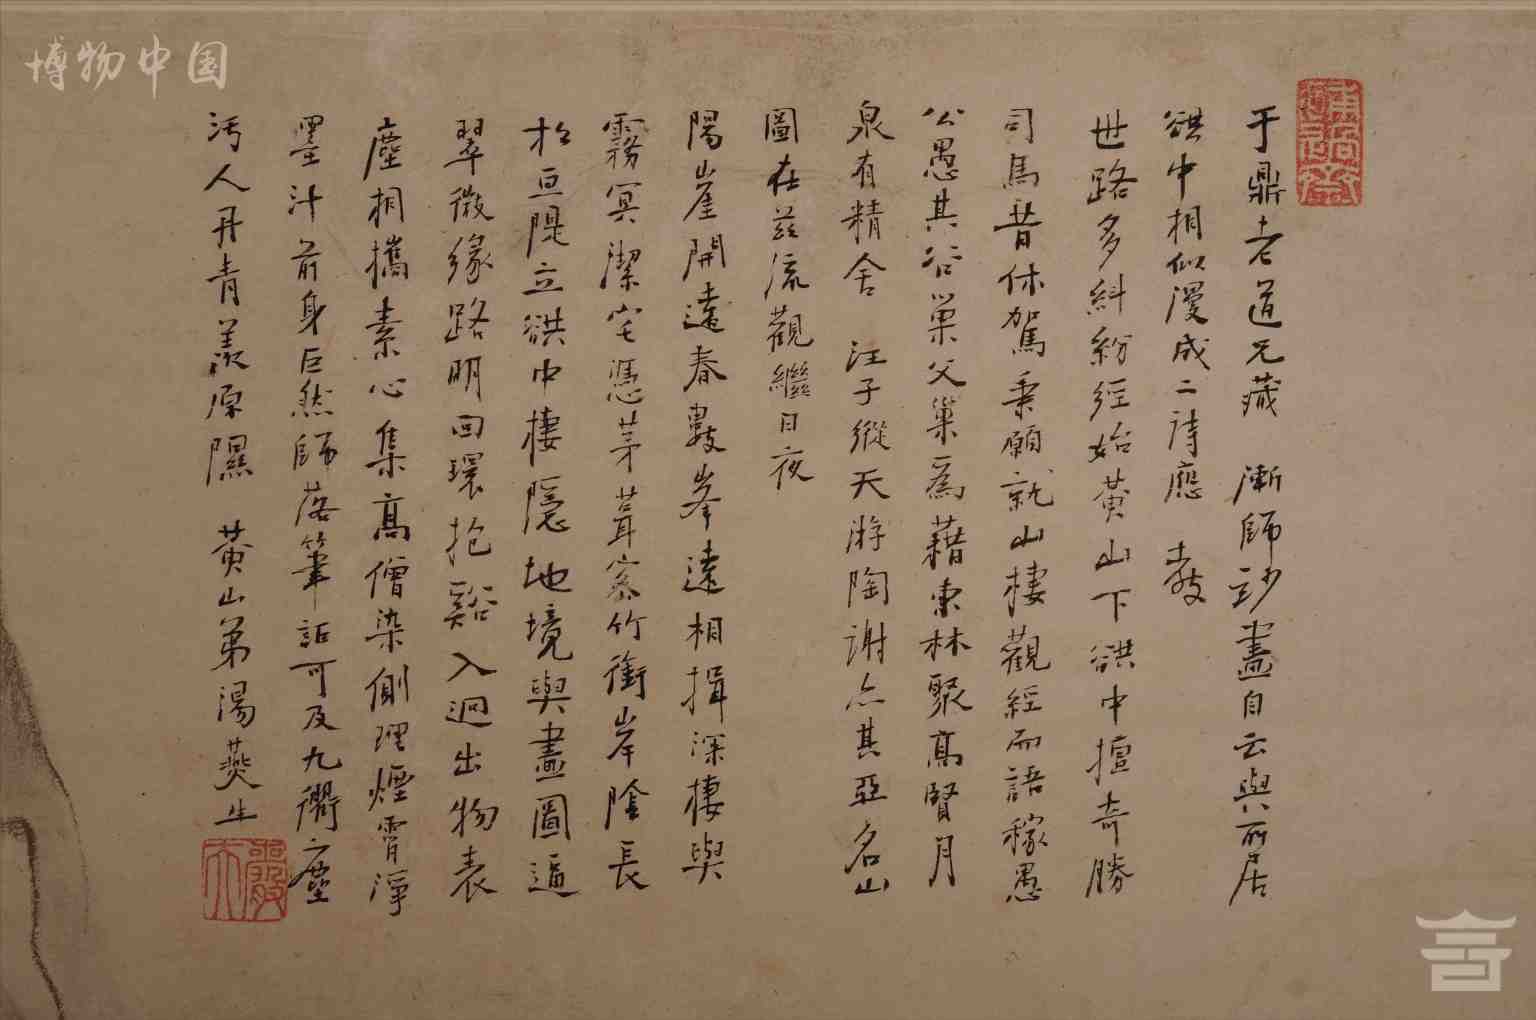 博物中国
于鼎老道兄藏 漸師妙畫自云與所居
谼中相似漫成二詩應 教
世路多糾紛經始黄山下谼中擅奇勝
司馬昔休駕秉願就山棲觀經而語稼愚
公愚其谷巢父巢為藉東林聚高賢月
泉有精舍 汪子縱天游陶謝亦其亞名山
圖在兹流觀繼日夜
陽崖開遠春數峯遠相揖深棲與
霧冥潔宅憑茅葺密竹銜岸陰長
松亘隄立谼中棲隱地境與畫圖逼
翠微緣路明回環抱谿入迥出物表
塵相攜素心集高僧染側理煙霄淨
墨汁前身巨然師落筆詎可及九衢塵
污人丹青羨原隰 黄山弟湯燕生